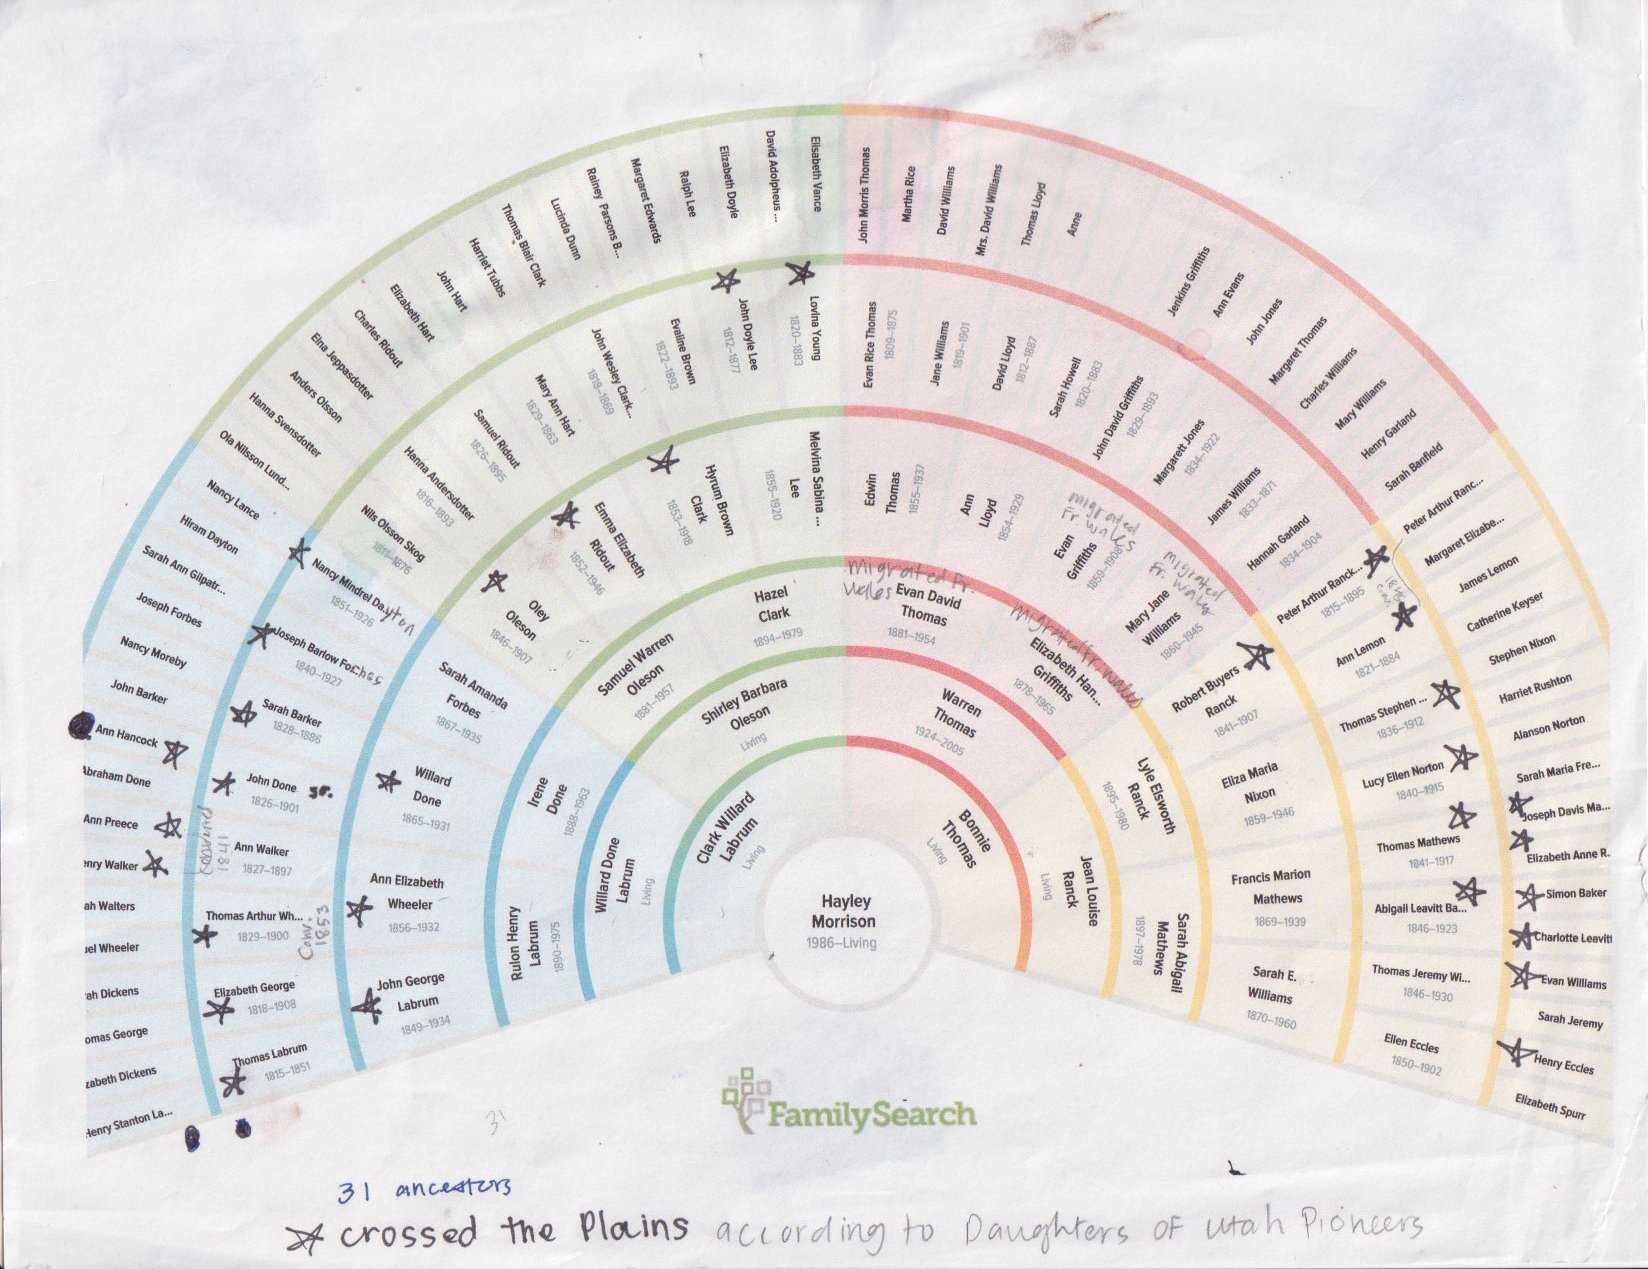 Hayley
Morrison
1986–Living
Clark Willard
Labrum
Living
Bonnie
Thomas
Living
Willard Done
Labrum
Living
Shirley Barbara
Oleson
Living
Warren
Thomas
1924–2005
Jean Louise
Ranck
Living
Rulon Henry
Labrum
1890–1975
Irene
Done
1888–1963
Samuel Warren
Oleson
1881–1957
Hazel
Clark
1894–1979
migrated Fr.
Wales
Evan David
Thomas
1881–1954
migrated Fr. Wales
Elizabeth Han...
Griffiths
1878–1965
Lyle Elsworth
Ranck
1895–1980
Sarah Abigail
Mathews
1897–1978
John George
Labrum
1849–1934
Ann Elizabeth
Wheeler
1856–1932
Willard
Done
1865–1931
Sarah Amanda
Forbes
1867–1935
Oley
Oleson
1846–1907
Emma Elizabeth
Ridout
1852–1946
Hyrum Brown
Clark
1853–1918
Melvina Sabina ...
Lee
1855–1920
Edwin
Thomas
1855–1937
Ann
Lloyd
1854–1929
migrated
Fr. Wales
Evan
Griffiths
1859–1908
migrated
Fr. Wales
Mary Jane
Williams
1860–1945
Robert Buyers
Ranck
1841–1907
Eliza Maria
Nixon
1859–1946
Francis Marion
Mathews
1869–1939
Sarah E.
Williams
1870–1960
Thomas Labrum
1815–1851
Elizabeth George
1818–1908
Thomas Arthur Wh...
1829–1900
Conv.
1853
Ann Walker
1827–1897
1841
John Done sr.
1826–1901
Sarah Barker
1828–1886
Joseph Barlow Fo
1840–1927
Nancy Mindrel Dayton
1851–1926
Nils Olsson Skog
Hanna Andersdotter
1816–1893
Samuel Ridout
1826–1895
Mary Ann Hart
1829–1863
John Wesley Clark...
1818–1869
Evaline Brown
1822–1893
John Doyle Lee
1812–1877
Lovina Young
1820–1883
Evan Rice Thomas
1809–1875
Jane Williams
1819–1901
David Lloyd
1812–1887
Sarah Howell
1820–1883
John David Griffiths
1829–1893
Margarett Jones
1834–1922
James Williams
1833–1871
Hannah Garland
1834–1904
Peter Arthur Ranck...
1815–1895
Ann Lemon
1821–1884
Thomas Stephen ...
1836–1912
Lucy Ellen Norton
1840–1915
Thomas Mathews
1841–1917
Abigail Leavitt Ba...
1846–1923
Thomas Jeremy Wi...
1846–1930
Ellen Eccles
1850–1902
Henry Stanton La...
zabeth Dickens
omas George
ah Dickens
uel Wheeler
ah Walters
enry Walker
Ann Preece
Abraham Done
Ann Hancock
John Barker
Nancy Moreby
Joseph Forbes
Sarah Ann Gilpatr...
Hiram Dayton
Nancy Lance
Ola Nilsson Lund...
Hanna Svensdotter
Anders Olsson
Elna Jeppasdotter
Charles Ridout
Elizabeth Hart
John Hart
Harriet Tubbs
Thomas Blair Clark
Lucinda Dunn
Rainey Parsons B...
Margaret Edwards
Ralph Lee
Elizabeth Doyle
David Adolpheus ...
Elisabeth Vance
John Morris Thomas
Martha Rice
David Williams
Mrs. David Williams
Thomas Lloyd
Anne
Jenkins Griffiths
Ann Evans
John Jones
Margaret Thomas
Charles Williams
Mary Williams
Henry Garland
Sarah Banfield
Peter Arthur Ranc...
Margaret Elizabe...
James Lemon
Catherine Keyser
Stephen Nixon
Harriet Rushton
Alanson Norton
Sarah Maria Fre...
Joseph Davis Ma...
Elizabeth Anne R.
Simon Baker
Charlotte Leavitt
Evan Williams
Sarah Jeremy
Henry Eccles
Elizabeth Spurr
FamilySearch
31
31 ancestors
crossed the Plains according to Daughters of Utah Pioneers